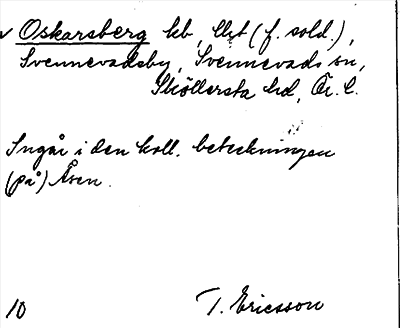 ✓ Oskarsberg kb, llht (f. sold.),
Svennevadsby, Svennevads sn,
Sköllersta hd, Ör. l.
Ingår i den koll. beteckningen
(på) Åsen.
10 T. Ericsson